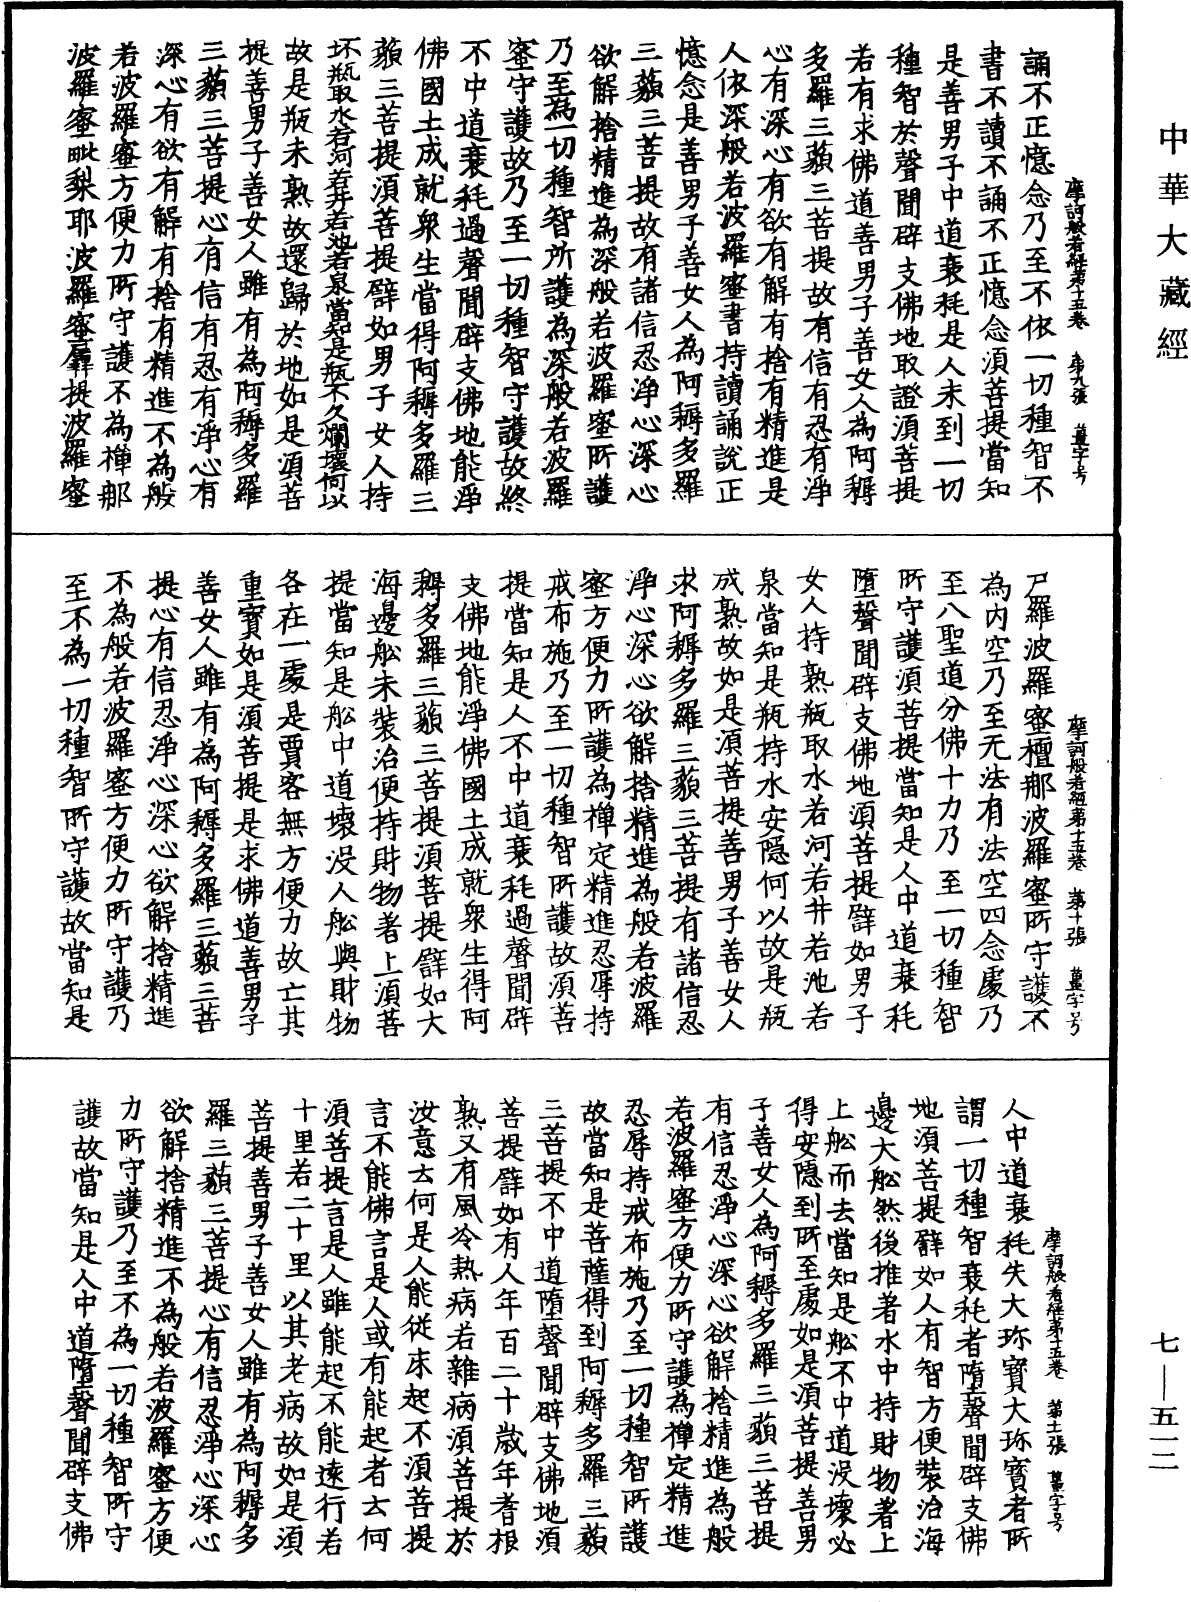 中華大藏經
摩訶般若經第十五卷 第九張 薑字号
誦不正憶念乃至不依一切種智不
書不讀不誦不正憶念須菩提當知
是善男子中道衰耗是人未到一切
種智於聲聞辟支佛地取證須菩提
若有求佛道善男子善女人為阿耨
多羅三藐三菩提故有信有忍有淨
心有深心有欲有解有捨有精進是
人依深般若波羅蜜書持讀誦說正
憶念是善男子善女人為阿耨多羅
三藐三菩提故有諸信忍淨心深心
欲解捨精進為深般若波羅蜜所護
乃至為一切種智所護為深般若波羅
蜜守護故乃至一切種智守護故終
不中道衰耗過聲聞辟支佛地能淨
佛國土成就衆生當得阿耨多羅三
藐三菩提須菩提譬如男子女人持
坏瓶取水若河若井若池若泉當知是瓶不久爛壞何以
故是瓶未熟故還歸於地如是須菩
提善男子善女人雖有為阿耨多羅
三藐三菩提心有信有忍有淨心有
深心有欲有解有捨有精進不為般
若波羅蜜方便力所守護不為禪那
波羅蜜毗梨耶波羅蜜羼提波羅蜜
摩訶般若經第十五卷 第十張 薑字号
尸羅波羅蜜檀那波羅蜜所守護不
為内空乃至无法有法空四念處乃
至八聖道分佛十力乃至一切種智
所守護須菩提當知是人中道衰耗
墮聲聞辟支佛地須菩提譬如男子
女人持熟瓶取水若河若井若池若
泉當知是瓶持水安隱何以故是瓶
成熟故如是須菩提善男子善女人
求阿耨多羅三藐三菩提有諸信忍
淨心深心欲解捨精進為般若波羅
蜜方便力所護為禪定精進忍辱持
戒布施乃至一切種智所護故須菩
提當知是人不中道衰耗過聲聞辟
支佛地能淨佛國土成就衆生得阿
耨多羅三藐三菩提須菩提譬如大
海邊舩未裝治便持財物著上須菩
提當知是舩中道壞没人舩與財物
各在一處是賈客無方便力故亡其
重寶如是須菩提是求佛道善男子
善女人雖有為阿耨多羅三藐三菩
提心有信忍淨心深心欲解捨精進
不為般若波羅蜜方便力所守護乃
至不為一切種智所守護故當知是
摩訶般若經第十五卷 第十一張 薑字号
人中道衰耗失大珎寶大珎寶者所
謂一切種智衰耗者墮聲聞辟支佛
地須菩提譬如人有智方便裝治海
邊大舩然後推著水中持財物著上
上舩而去當知是舩不中道没壞必
得安隱到所至處如是須菩提善男
子善女人為阿耨多羅三藐三菩提
有信忍淨心深心欲解捨精進為般
若波羅蜜方便力所守護為禪定精進
忍辱持戒布施乃至一切種智所護
故當知是菩薩得到阿耨多羅三藐
三菩提不中道墮聲聞辟支佛地須
菩提譬如有人年百二十歲年耆根
熟又有風冷熱病若雜病須菩提於
汝意云何是人能從床起不須菩提
言不能佛言是人或有能起者云何
須菩提言是人雖能起不能遠行若
十里若二十里以其老病故如是須
菩提善男子善女人雖有為阿耨多
羅三藐三菩提心有信忍淨心深心
欲解捨精進不為般若波羅蜜方便
力所守護乃至不為一切種智所守
護故當知是人中道墮聲聞辟支佛
七—五一二